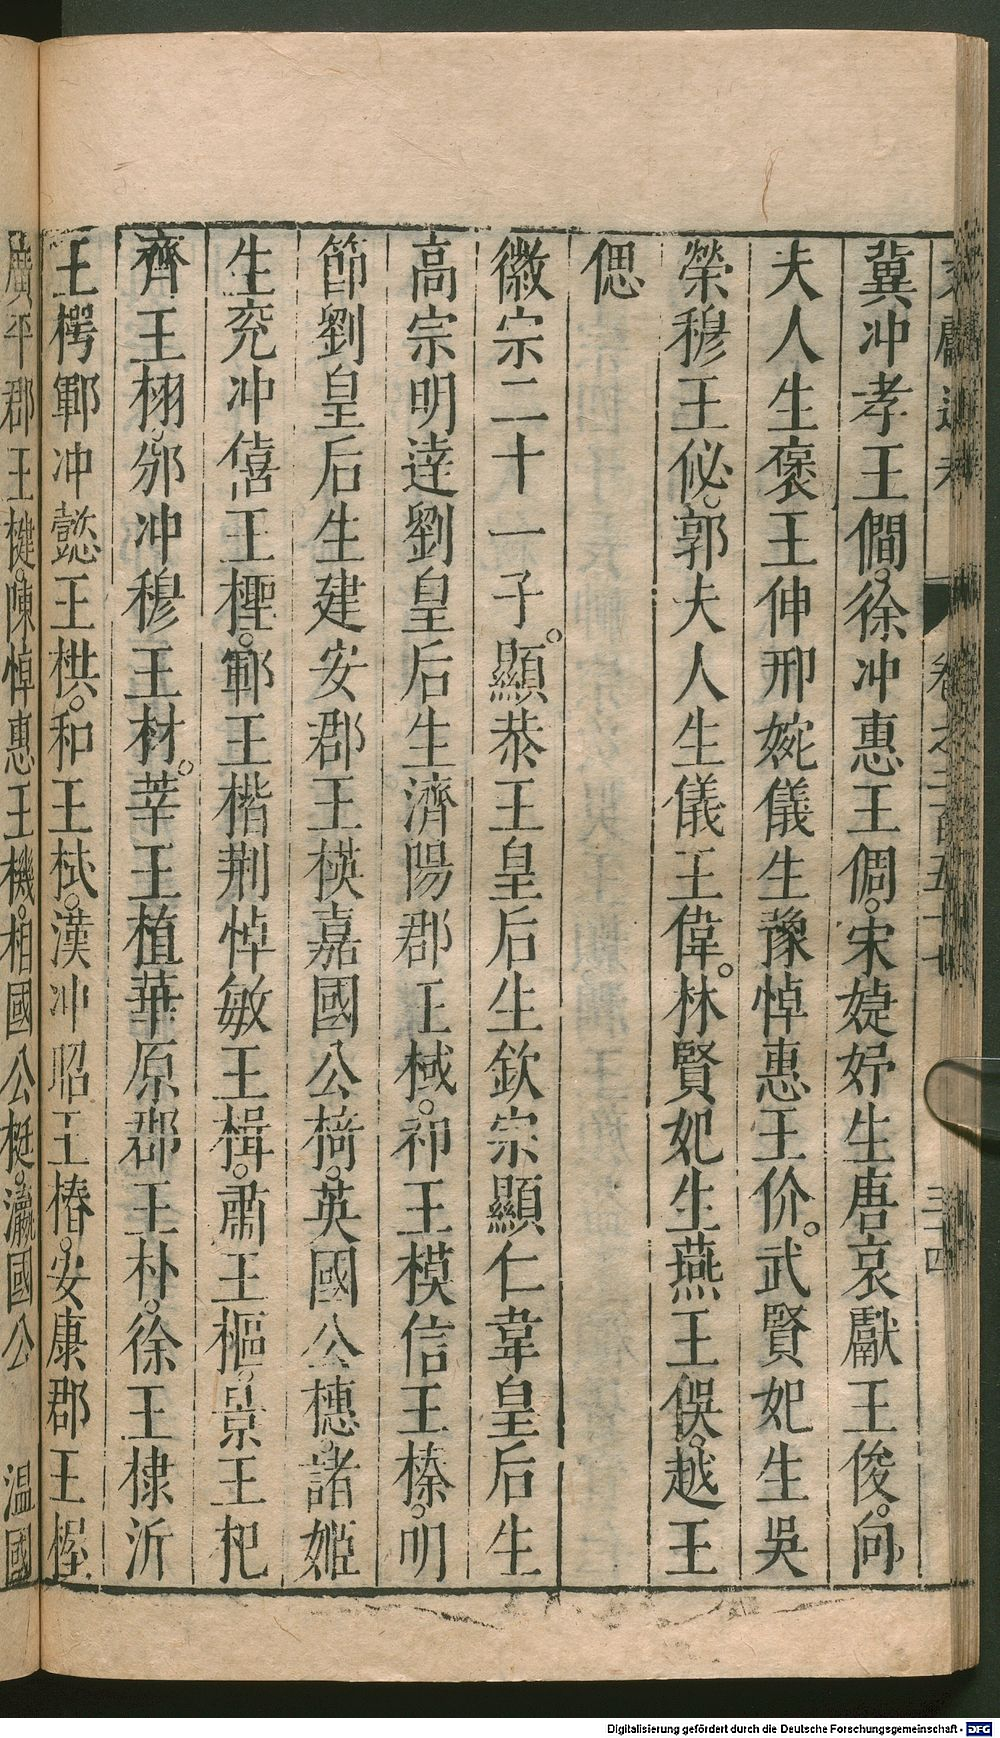 文獻通考 卷之二百五十七 三十四
冀冲孝王僩。徐冲惠王倜。宋婕妤生唐哀獻王俊。向
夫人生褒王伸邢婉儀生豫悼惠王价。武賢妃生吳
榮穆王佖。郭夫人生儀王偉。林賢妃生燕王俁。越王
偲
徽宗二十一子。顯恭王皇后生欽宗顯仁韋皇后生
高宗明達劉皇后生濟陽郡王棫。祁王模信王榛。明
節劉皇后生建安郡王楧嘉國公椅。英國公橞。諸姬
生兖冲僖王檉。鄆王楷荆悼敏王楫。肅王樞。景王杞
齊王栩。邠冲穆王材。莘王植華原郡王朴。徐王棣沂
王㮙鄆冲懿王栱。和王栻。漢冲昭王椿。安康郡王楃
廣平郡王楗。陳悼惠王機。相國公梃。瀛國公 溫國
Digitalisierung gefördert durch die Deutsche Forschungsgemeinschaft - DFG